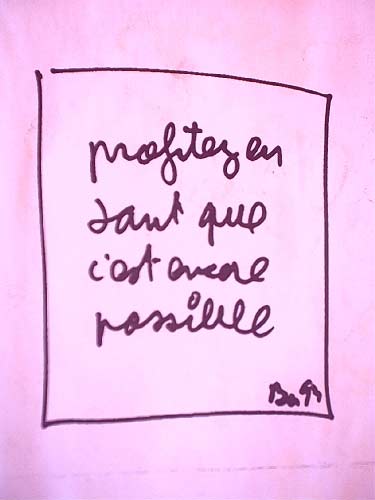 profitez en
tant que
c'est encore
possible